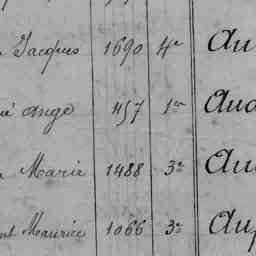 Jacques 1690 4e Au
ange 1157 1er Aud
Marie 1488 3e Au
Maurice 1066 3e Aup